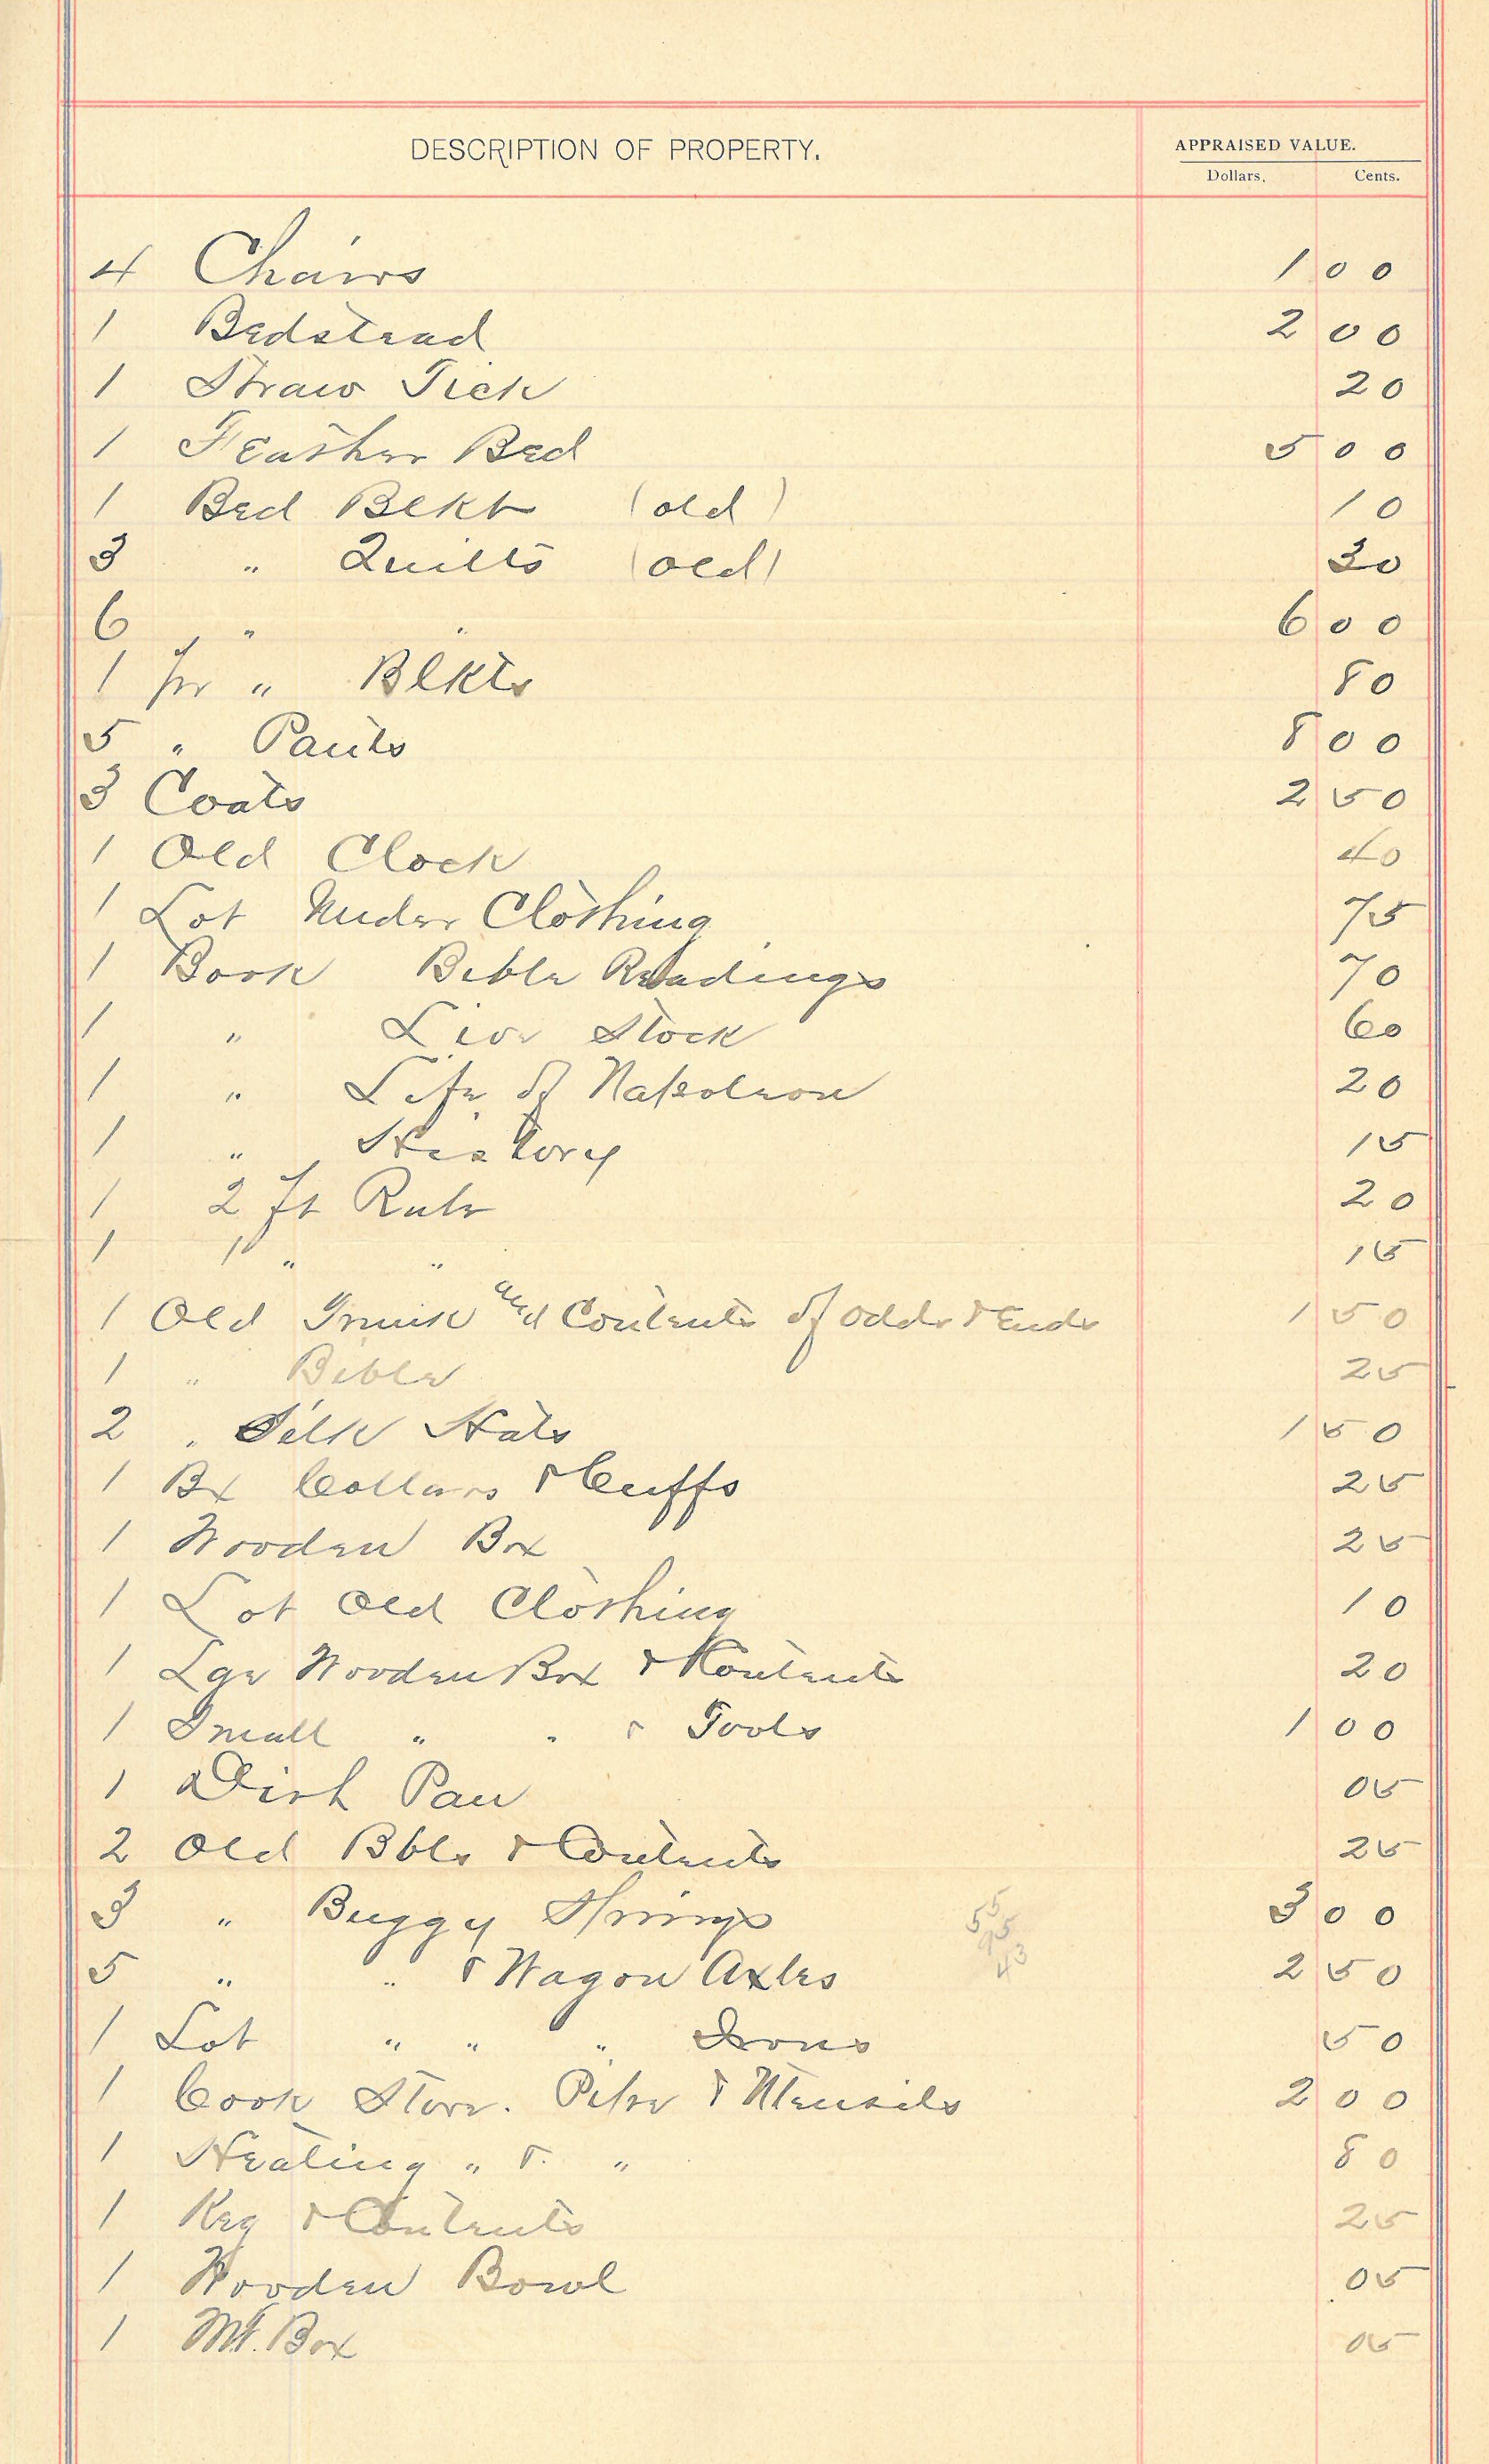 DESCRIPTION OF PROPERTY. APPRAISED VALUE.
Dollars. Cents.
4 Chairs 1 00
1 Bedstead 2 00
1 Straw Tick 20
1 Feather Bed 5 00
1 Bed Blkt (old) 10
3 " Quilts (old) 30
6 " " 6 00
1 pr " Blkts 80
5 " Pants 8 00
3 Coats 2 50
1 Old Clock 40
1 Lot Under Clothing 75
1 Book Bible Readings 70
1 " Live Stock 60
1 " Life of Napoleon 20
1 " History 15
1 2 ft Rule 20
1 1 " " 15
1 Old Trunk and Contents of odds & Ends 1 50
1 " Bible 25
2 " Silk Hats 1 50
1 Bx Collars & Cuffs 25
1 Wooden Box 25
1 Lot Old Clothing 10
1 Lge Wooden Box & Contents 20
1 Small " " & Tools 1 00
1 Dish Pan 05
2 Old Bbls & Contents 25
3 " Buggy Springs 55 3 00
95
5 " " & Wagon Axles 43 2 50
1 Lot " " " Irons 50
1 Cook Stove. Pipe & Utensils 2 00
1 Heating " & " 80
1 Keg & Contents 25
1 Wooden Bowl 05
1 Mt. Box 05